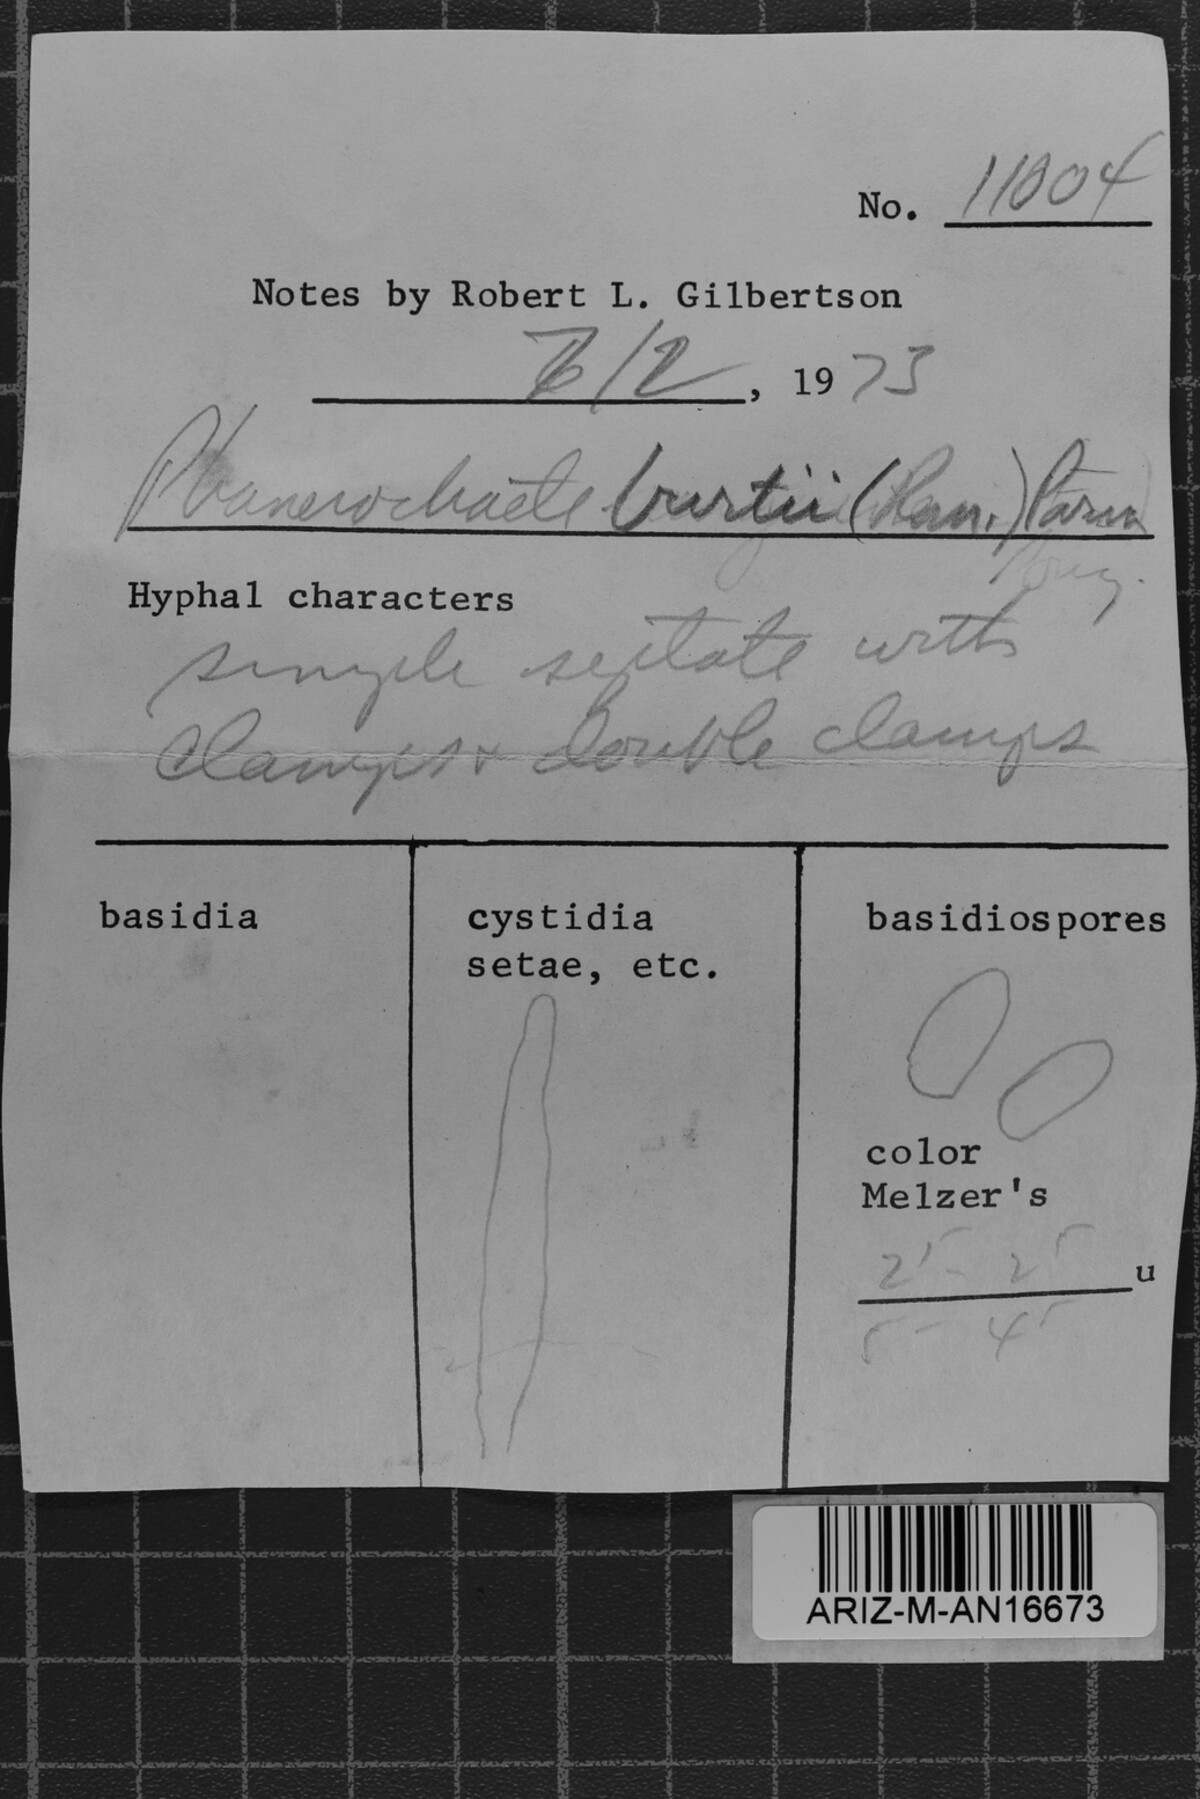 No. 11004
Notes by Robert L. Gilbertson
7/2, 1973
Phanerochaete burtii (Rom.) Parm
Hyphal characters
simple septate with
clamps + double clamps
basidia
cystidia
setae, etc.
basidiospores
color
Melzer's
25 - 25 u
5 - 45
ARIZ-M-AN16673